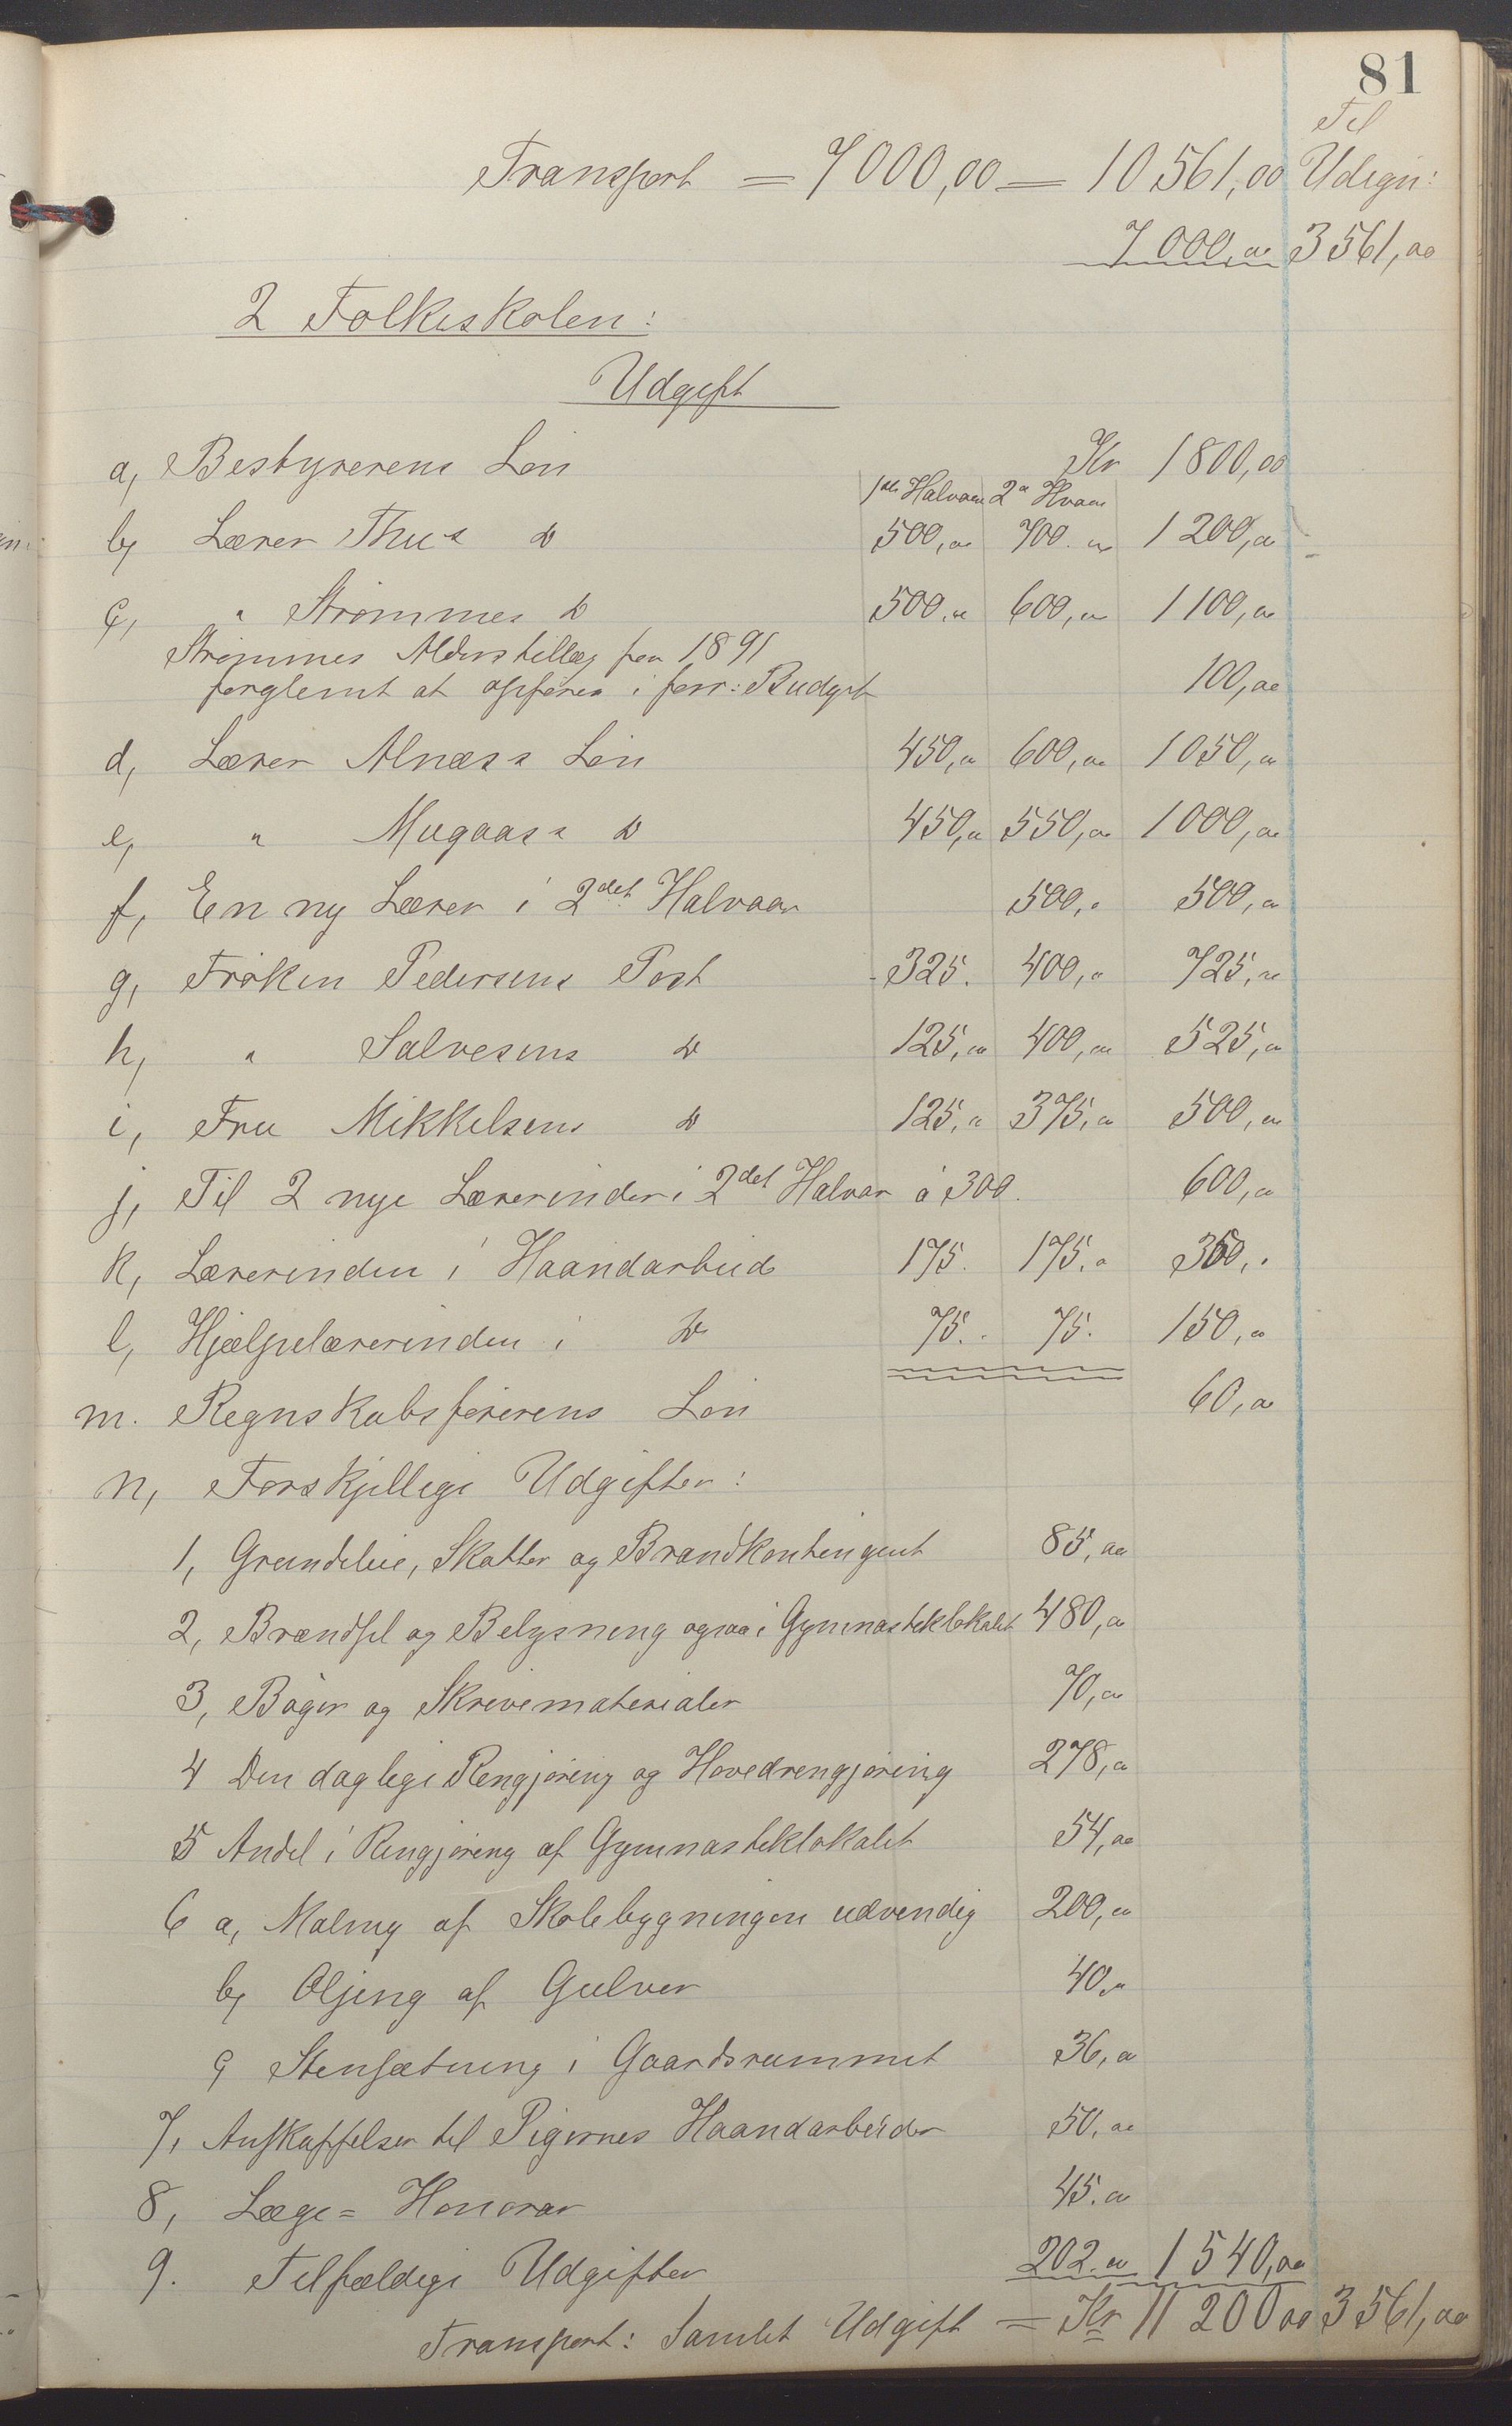 81
Til
Transport = 7000,00 = 10561,00 Udlign:
7000,00 3561,00
2 Folkeskolen:
Udgift
a, Bestyrerens Løn Kr 1800,00
1ste Halvaar 2det Hvaar
b, Lærer Thu's do 500,00 700.00 1200,00
c, " Strømmes do 500.00 600,00 1100,00
Strømmes Alderstillæg for 1891
forglemt at opføres i forr: Budget 100,00
d, Lærer Alnæss Løn 450,00 600,00 1050,00
e, " Mugaass do 450,00 550,00 1000,00
f, En ny Lærer i 2det Halvaar 500,00 500,00
g, Frøken Pedersens Post 325. 400,00 725,00
h, " Salvesens do 125,00 400,00 525,00
i, Fru Mikkelsens do 125,00 375,00 500,00
j, Til 2 nye Lærerinder i 2det Halvår á 300. 600,00
k, Lærerinden i Haandarbeide 175. 175.00 350,00
l, Hjælpelærerinden i do 75.00 75. 150,00
m. Regnskabsførerens Løn 60,00
n, Forskjellige Udgifter:
1, Grundleie, Skatter og Brandkontingent 85,00
2, Brændsel og Belysning ogsaa i Gymnastiklokalet 480,00
3, Bøger og Skrivematerialer 70,00
4 Den daglige Rengjøring og Hovedrengjøring 278,00
5 Andel i Rengjøring af Gymnastiklokalet 54,00
6 a, Maling af Skolebygningen udvendig 200,00
b, Oljing af Gulver 40,00
c, Stensætning i Gaardsrummet 36,00
7, Anskaffelser til Pigernes Haandarbeider 50,00
8, Læge= Honorar 45.00
9. Tilfældige Udgifter 202.00 1540,00
Transport: Samlet Udgift = Kr 11200 00 3561,00